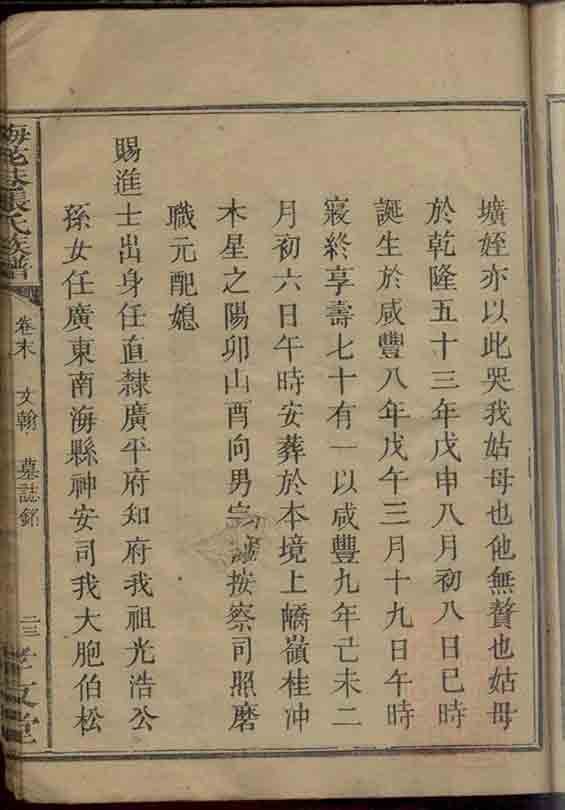 壙姪亦以此哭我姑母也他無贅也姑母
於乾隆五十三年戊申八月初八日巳時
誕生於咸豐八年戊午三月十九日午時
寢終享壽七十有一以咸豐九年己未二
月初六日午時安葬於本境上嶠嶺桂冲
木星之陽卯山酉向男按察司照磨
職元配媳
賜進士出身任直隸廣平府知府我祖光浩公
孫女任廣東南海縣神安司我大胞伯松
張氏族譜
卷末 文翰 墓誌銘
二三
孝友堂